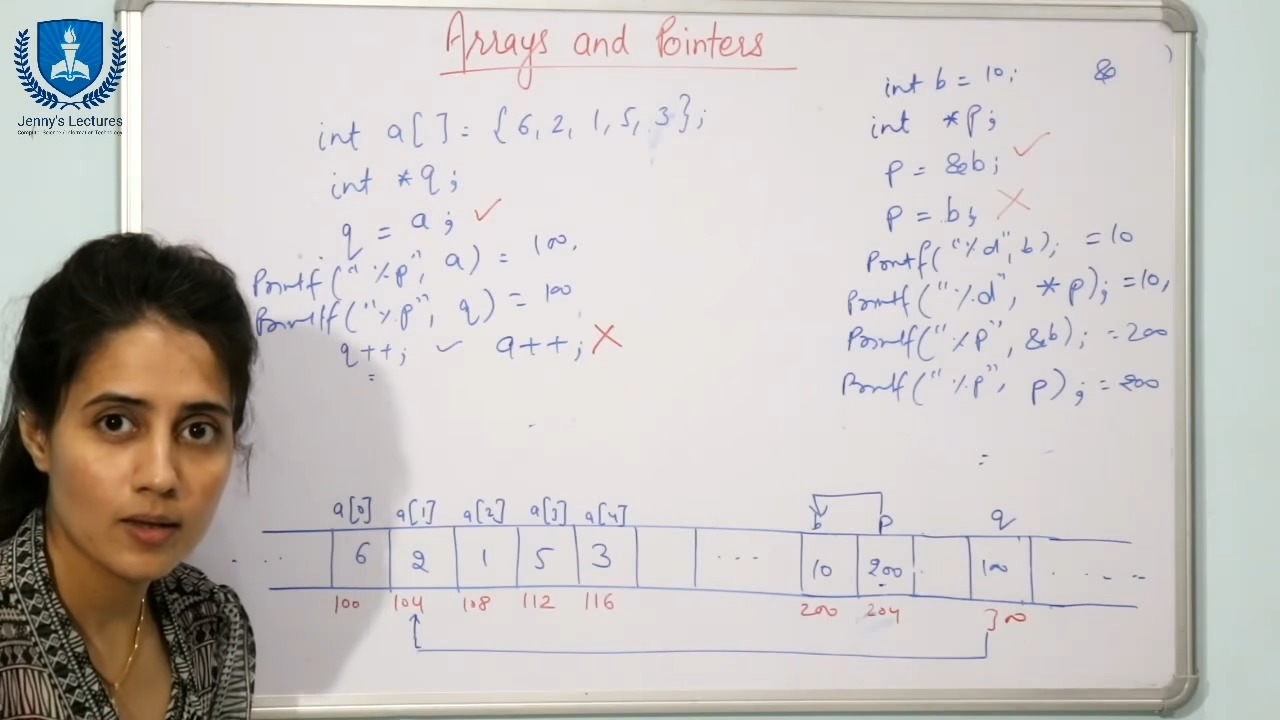 Jenny's Lectures
Computer Science/Information Technology
Arrays and Pointers
int a[ ] = {6, 2, 1, 5, 3};
int *q;
q = a; ✓
Printf("%p", a) = 100,
Printf("%p", q) = 100
q++; ✓ a++; X
=
int b = 10; &
int *p;
p = &b; ✓
p = b; X
Printf("%d", b); = 10
Printf("%d", *p); = 10,
Printf("%p", &b); = 200
Printf("%p", p); = 200
=
a[0] a[1] a[2] a[3] a[4] b p q
. . 6 2 1 5 3 ... 10 200 . 100 . - - -
100 104 108 112 116 200 204 300